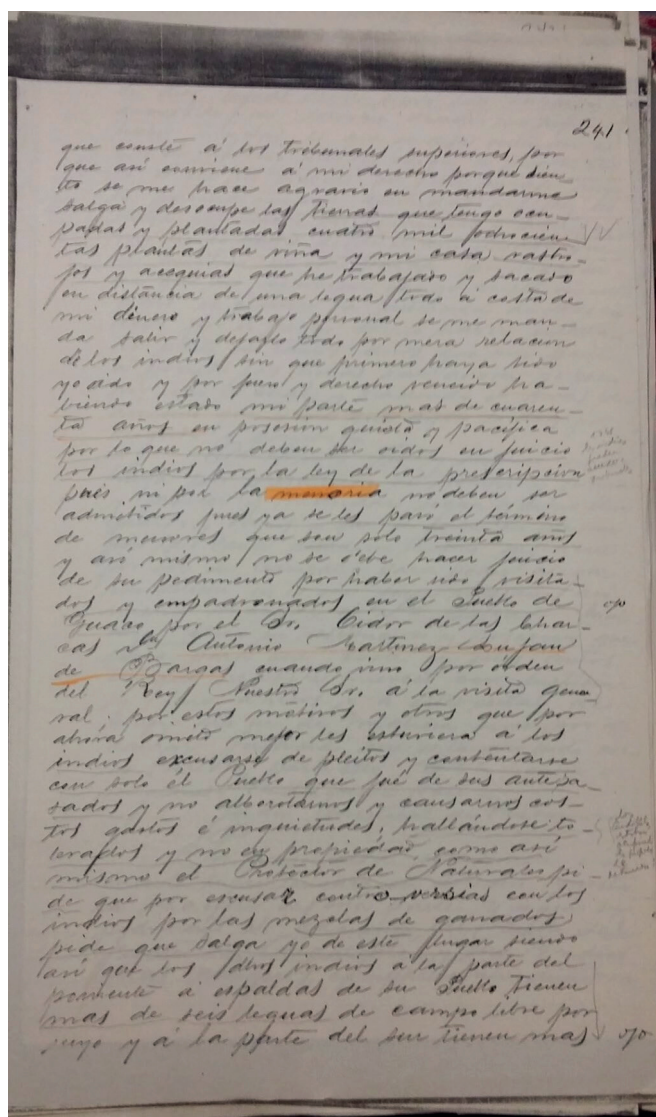 241
que conste á los tribunales superiores, por
que asi conviene á mi derecho porque sien-
to se me hace agravio en mandarme
salga y desocupe las tierras que tengo ocu-
padas y plantadas cuatro mil ochocien-
tas plantas de viña y mi casa rastro-
jos y acequias que he trabajado y sacado
en distancia de una legua todo a costa de
mi dinero y trabajo personal se me man-
da salir y dejarlo todo por mera relacion
de los indios sin que primero haya sido
yo oido y por fuero y derecho vencido ha-
biendo estado mi parte mas de cuaren-
ta años en posesion quieta y pacifica
por lo que no deben ser oidos en juicio
los indios por la ley de la prescripcion
pues ni por la memoria no deben ser
admitidos pues ya se les paró el término
de menores que son solo treinta años
y asi mismo no se debe hacer juicio
de su pedimento por haber sido visita-
dos y empadronados en el Pueblo de
por el Sr. Oidor de las Char-
cas Dn Antonio Martinez Lujan
de Bargas cuando vino por orden
del Rey Nuestro Sr. á la visita gene
ral; por estos motivos y otros que por
ahora omito mejor les estuviera a los
indios excusarse de pleitos y contentarse
con solo él Pueblo que fué de sus antepa-
sados y no alborotarnos y causarnos cos-
tos gastos é inquietudes, hallándose to-
lerados y no en propiedad, como asi
mismo el Protector de Naturales pi-
de que por escusar controversias con los
indios por las mezclas de ganados
pide que salga yo de este lugar siendo
asi que los dhos indios a la parte del
poniente á espaldas de su Pueblo tienen
mas de seis leguas de campo libre por
suyo y á la parte del sur tienen mas